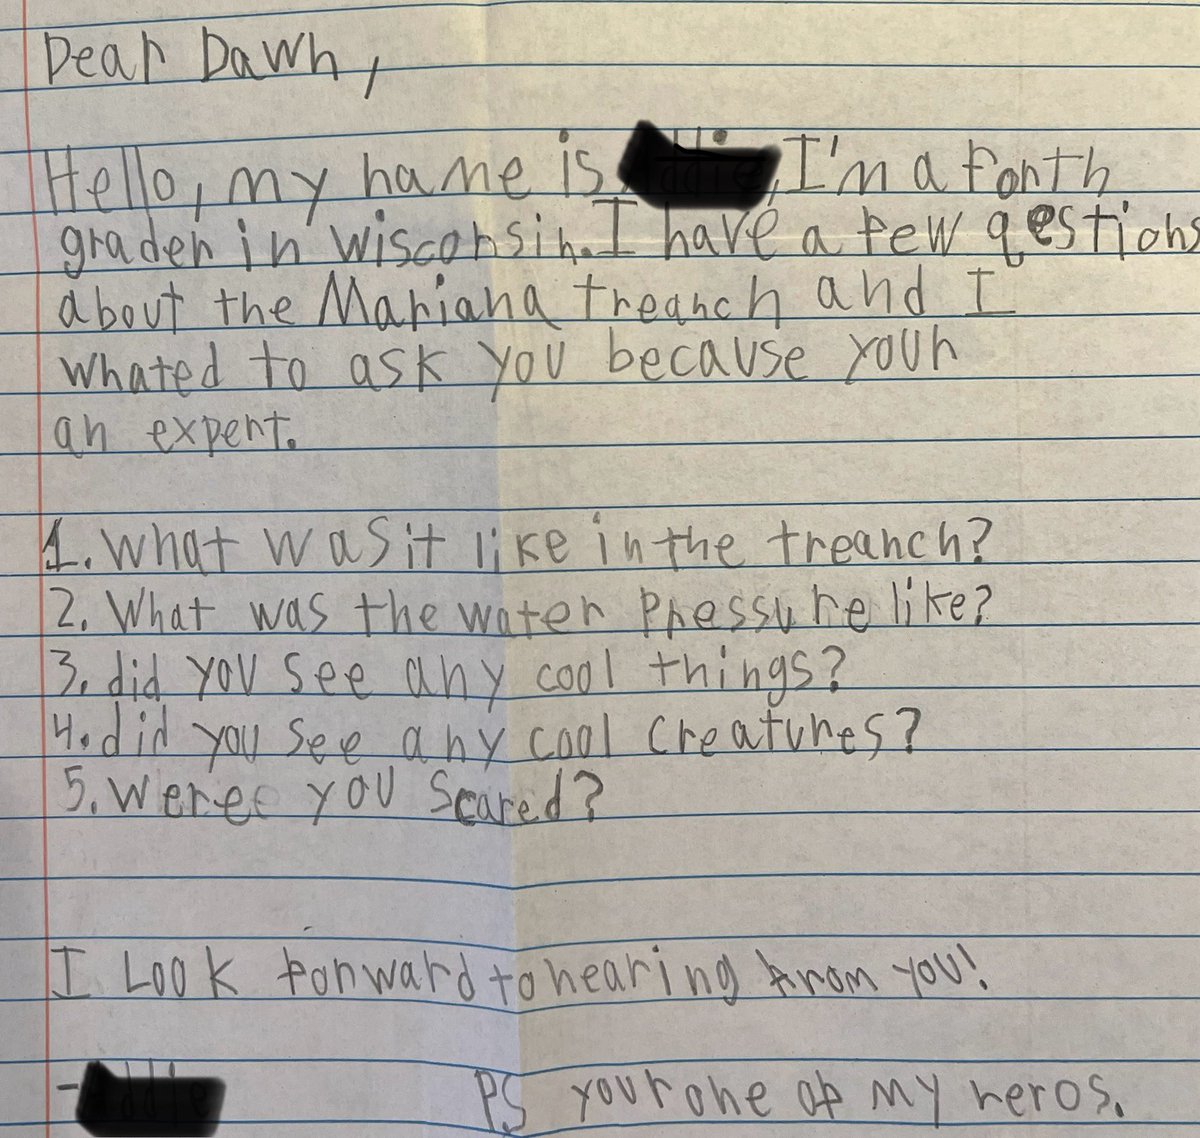 Dear Dawn,
Hello, my name is I'm a forth
grader in Wisconsin. I have a few qestions
about the Mariana treanch and I
whated to ask you because your
an expert.
1. What was it like in the treanch?
2. What was the water pressure like?
3. did you see any cool things?
4. did you see any cool creatures?
5. Were you scared?
I Look forward to hearing from you!
-
PS your one of my heros.